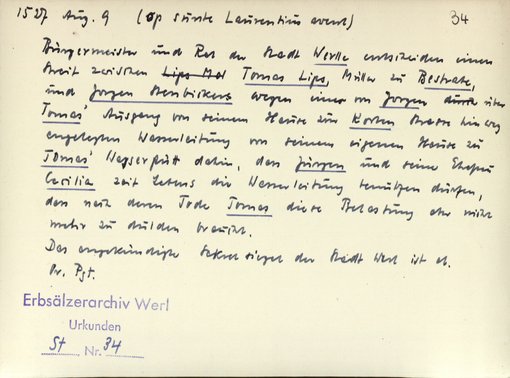 1527 Aug. 9 (op sunte Laurentius avent) 34
Bürgermeister und Rat der Stadt Werlle entscheiden einen
Streit zwischen Lips Mol Tomas Lips, Müller zu Bestrate,
und Jorgen wegen einer von Jorgen durch über
Tomas' Ausgang von seinem Hause zur Korten Strate hinweg
angelegten Wasserleitung von seinem eigenen Hause zu
Tomas' Wasserpütt dahin, dass Jürgen und seine Ehefrau
Cecilia zeit Lebens die Wasserleitung benutzen dürfen,
dass nach deren Tode Tomas diese Belastung aber nicht
mehr zu dulden braucht.
Das angekündigte Sekretsiegel der Stadt Werl ist ab.
Or. Pgt.
Erbsälzerarchiv Werl
Urkunden
St Nr. 34